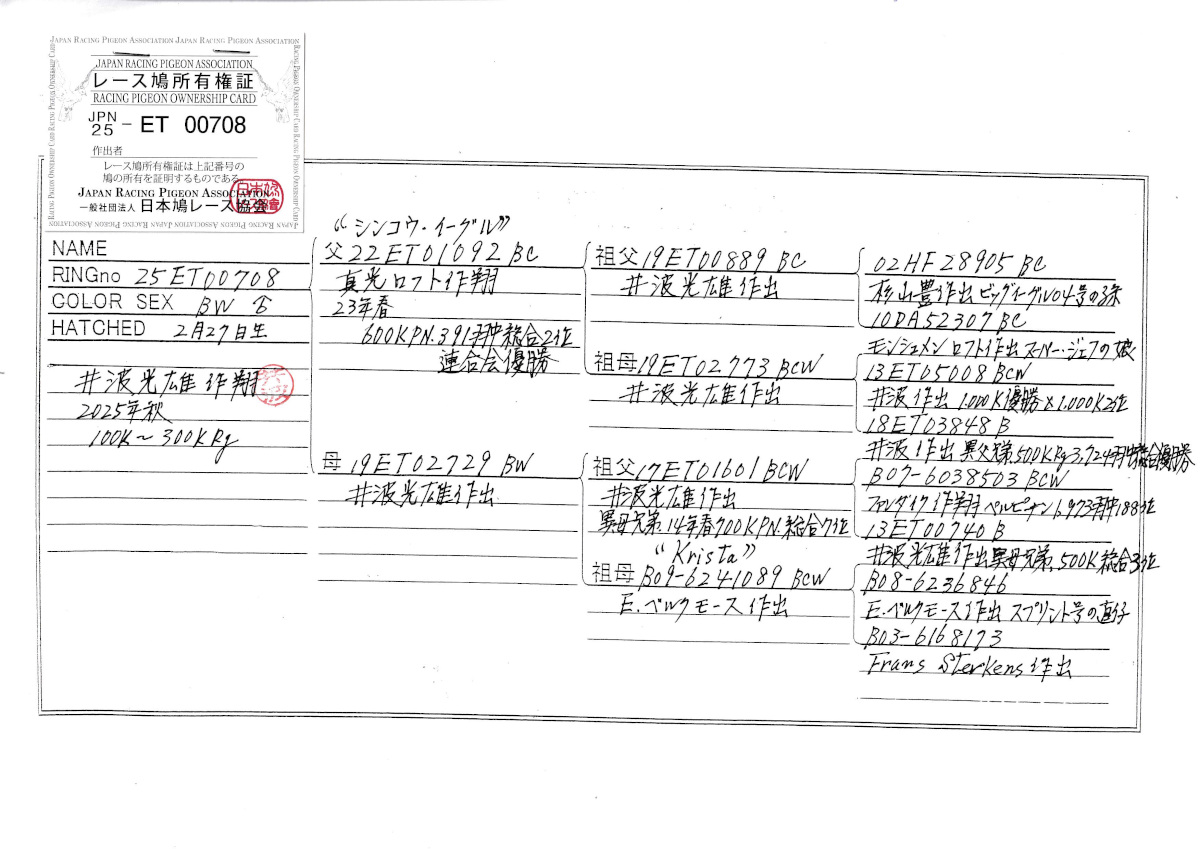 JAPAN RACING PIGEON ASSOCIATION JAPAN RACING PIGEON ASSOCIATION
JAPAN RACING PIGEON ASSOCIATION
レース鳩所有権証
RACING PIGEON OWNERSHIP CARD
JPN
25 - ET 00708
作出者
レース鳩所有権証は上記番号の
鳩の所有を証明するものである
JAPAN RACING PIGEON ASSOCIATION
一般社団法人 日本鳩レース協会
NAME
RINGno 25ET00708
COLOR SEX BW ♀
HATCHED 2月27日生
井波光雄作翔
2025年秋
100K～300K Rg
“シンコウ・イーグル”
父 22ET01092 BC
真光ロフト作翔
23年春
600KPN.391羽中総合2位
連合会優勝
母 19ET02729 BW
井波光雄作出
祖父 19ET00889 BC
井波光雄作出
祖母 19ET02773 BCW
井波光雄作出
祖父 17ET01601 BCW
井波光雄作出
異母兄弟.14年春700KPN.総合7位
“Krista”
祖母 B09-6241089 BCW
E.ベルクモース作出
02HF28905 BC
杉山豊作出 ビッグイーグル04号の孫
10DA52307 BC
モンシュメン ロフト作出 スーパー・ジェフの娘
13ET05008 BCW
井波作出 1.000K優勝×1.000K2位
18ET03848 B
井波作出 異父兄弟.500KRg3.724羽中総合優勝
B07-6038503 BCW
ファンダイク作翔 ペルピナン6.973羽中188位
13ET00740 B
井波光雄作出 異母兄弟.500K総合3位
B08-6236846
E.ベルクモース作出 スプリント号の直仔
B03-6168173
Frans Sterkens作出